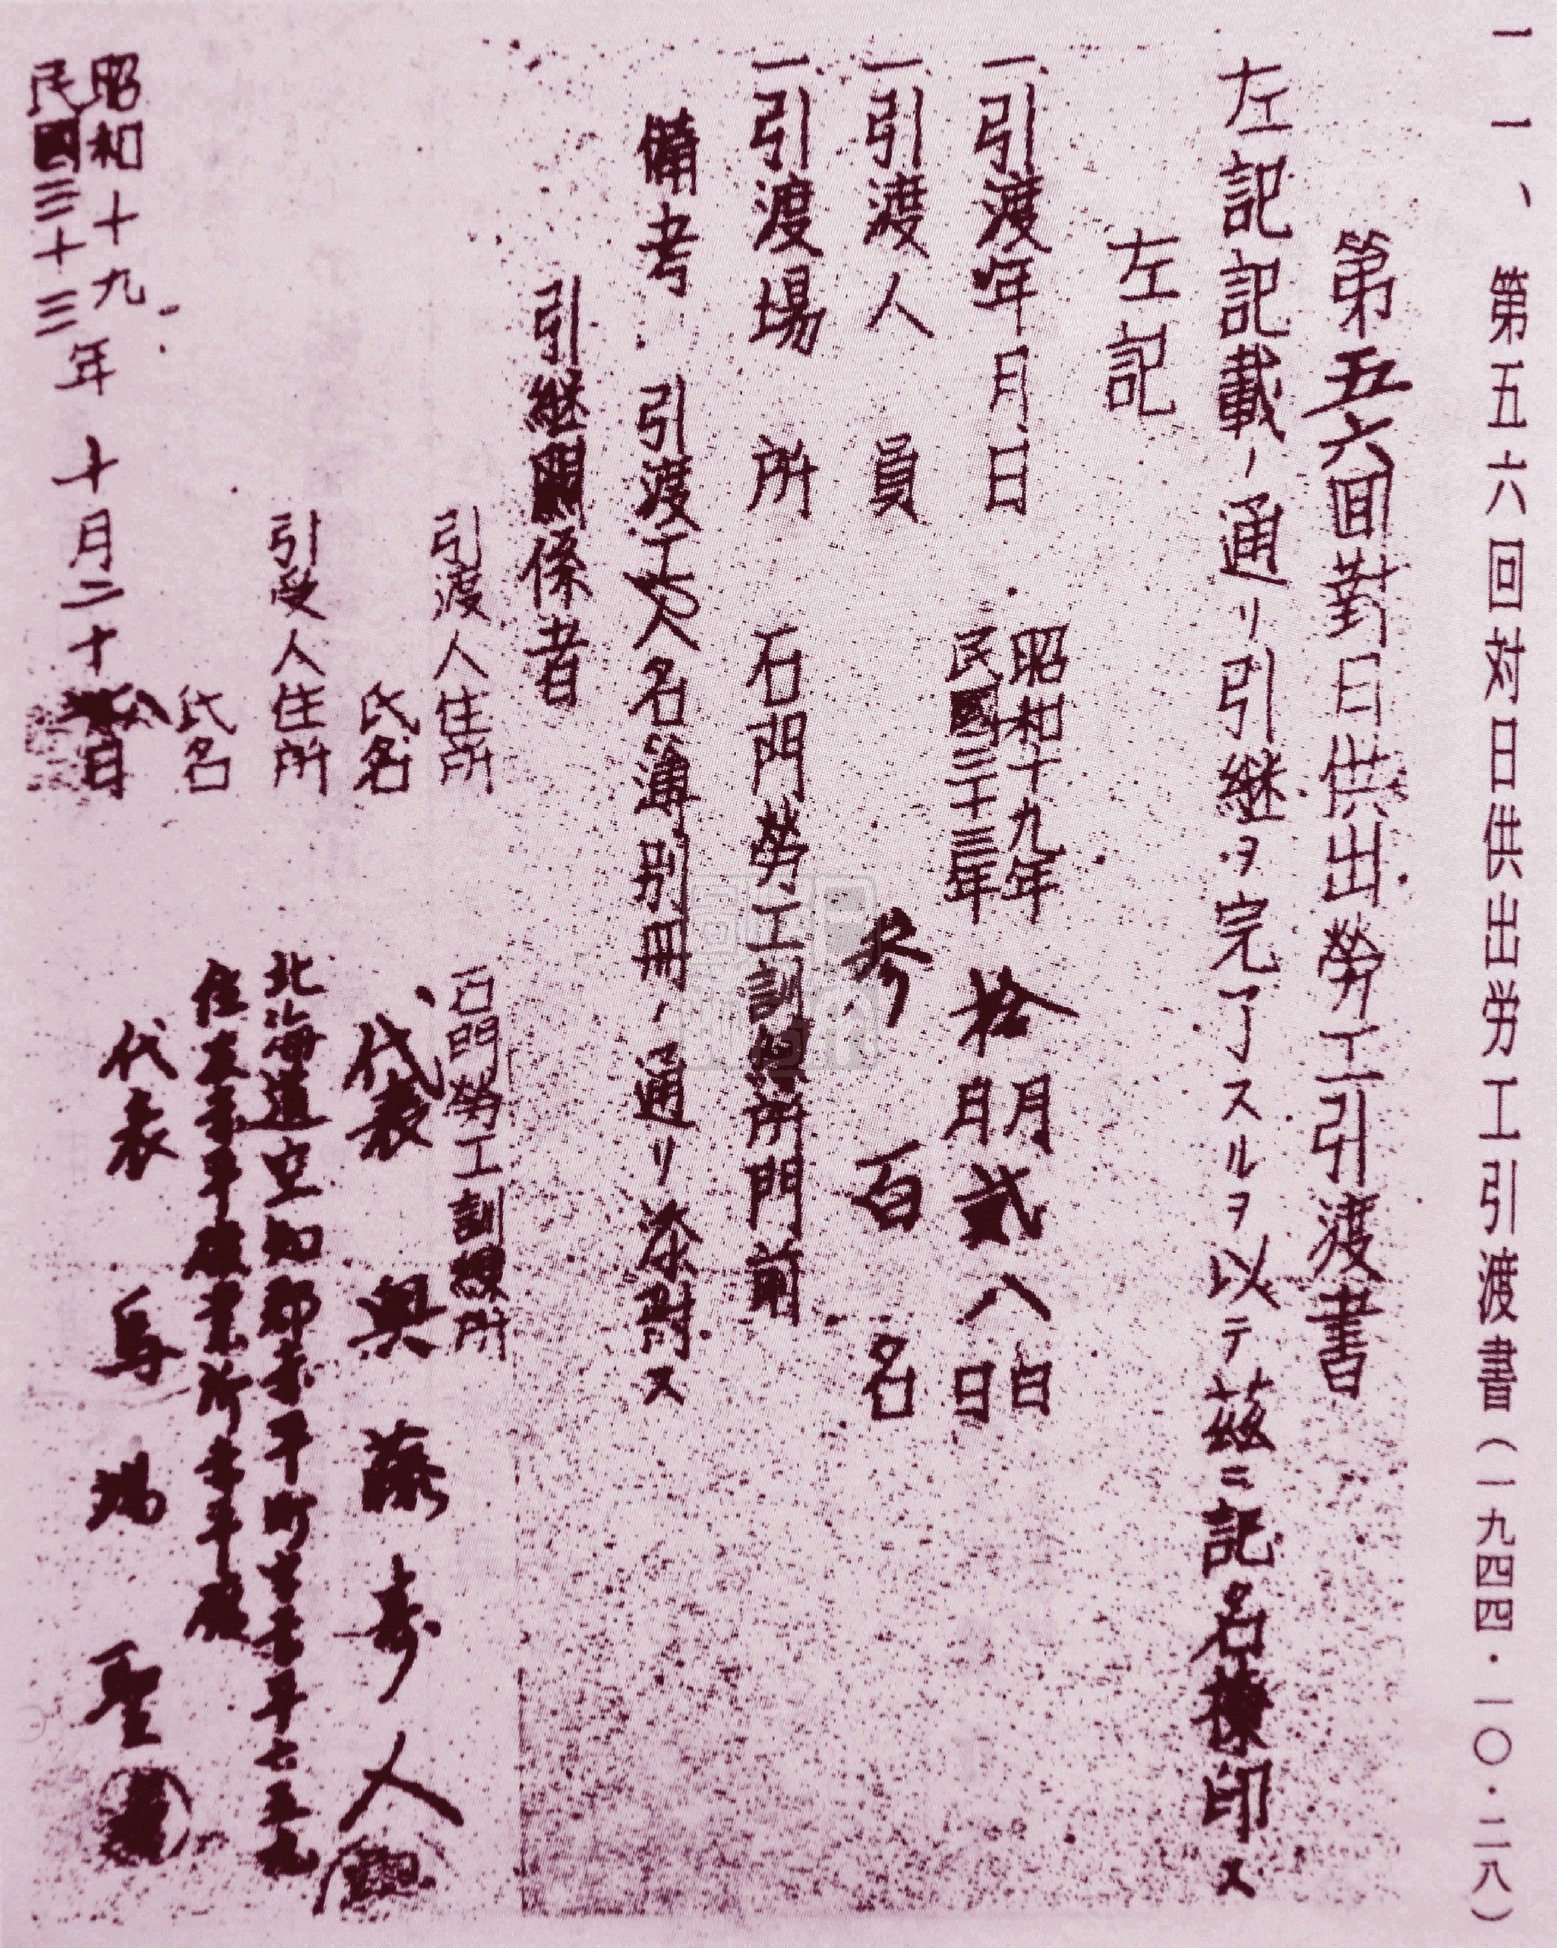 一一、第五六回対日供出労工引渡書(一九四四・一〇・二八)
第五六回對日供出勞工引渡書
左記記載ノ通リ引継ヲ完了スルヲ以テ茲ニ記名捺印ス
左記
一引渡年月日 昭和十九年 民國三十三年 拾月貳八日
一引渡人員 参百名
一引渡場所 石門勞工訓練所門前
備考 引渡工人名簿別冊ノ通リ添附ス
引継関係者
引渡人住所 石門勞工訓練所
氏名 代表 人
引受人住所 北海道空知郡赤平町字赤平七五九
住友赤平礦業所赤平礦
氏名 代表
昭和十九
民國三十三年 十月二十 日